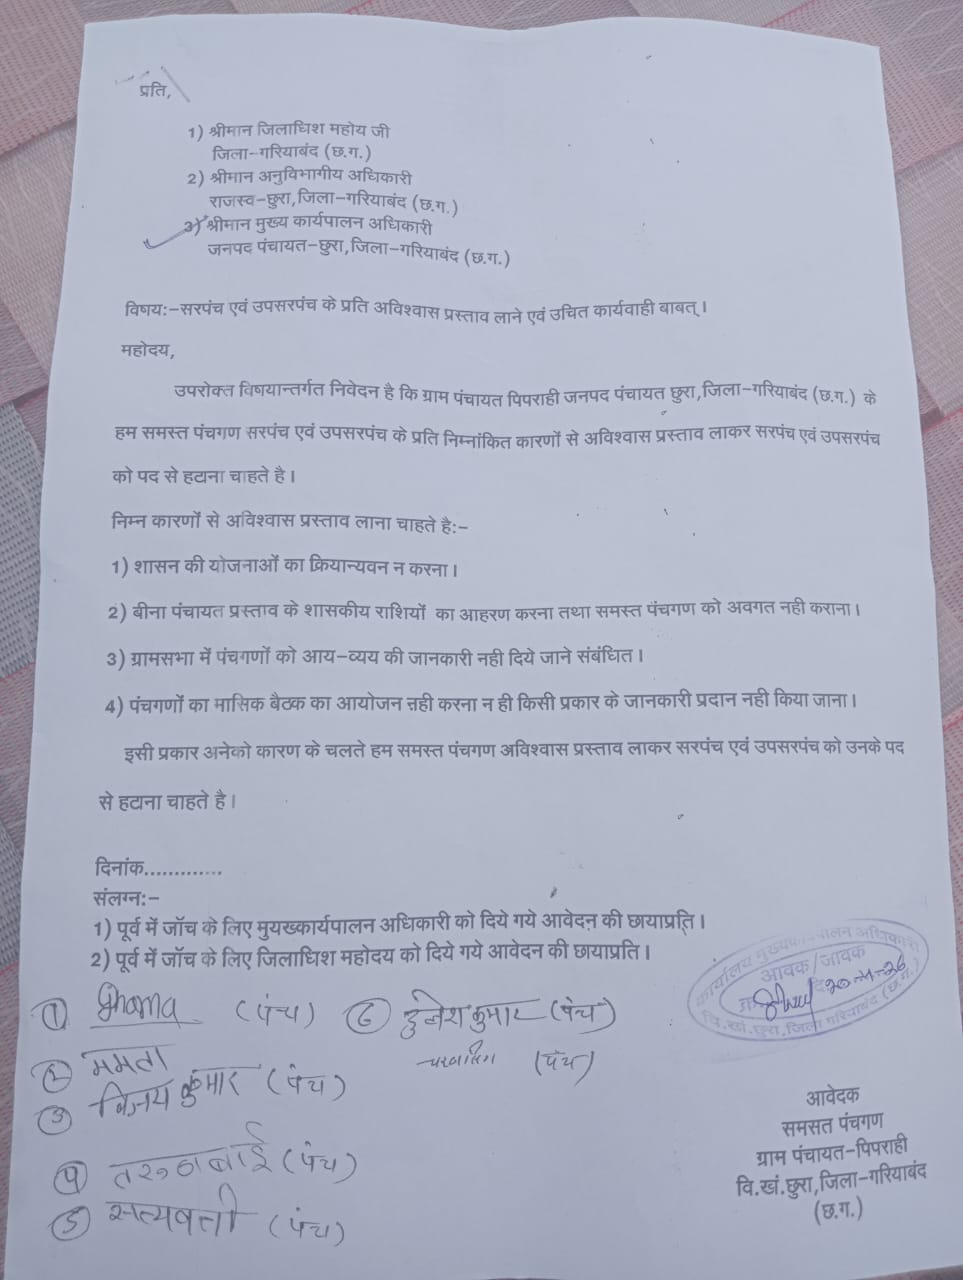 प्रति,
1) श्रीमान जिलाधिश महोय जी
जिला-गरियाबंद (छ.ग.)
2) श्रीमान अनुविभागीय अधिकारी
राजस्व-छुरा,जिला-गरियाबंद (छ.ग.)
3) श्रीमान मुख्य कार्यपालन अधिकारी
जनपद पंचायत-छुरा,जिला-गरियाबंद (छ.ग.)
विषय:-सरपंच एवं उपसरपंच के प्रति अविश्वास प्रस्ताव लाने एवं उचित कार्यवाही बाबत्।
महोदय,
उपरोक्त विषयान्तर्गत निवेदन है कि ग्राम पंचायत पिपराही जनपद पंचायत छुरा,जिला-गरियाबंद (छ.ग.) के
हम समस्त पंचगण सरपंच एवं उपसरपंच के प्रति निम्नांकित कारणों से अविश्वास प्रस्ताव लाकर सरपंच एवं उपसरपंच
को पद से हटाना चाहते है।
निम्न कारणों से अविश्वास प्रस्ताव लाना चाहते है:-
1) शासन की योजनाओं का क्रियान्यवन न करना।
2) बीना पंचायत प्रस्ताव के शासकीय राशियों का आहरण करना तथा समस्त पंचगण को अवगत नही कराना।
3) ग्रामसभा में पंचगणों को आय-व्यय की जानकारी नही दिये जाने संबंधित।
4) पंचगणों का मासिक बैठक का आयोजन नही करना न ही किसी प्रकार के जानकारी प्रदान नही किया जाना।
इसी प्रकार अनेको कारण के चलते हम समस्त पंचगण अविश्वास प्रस्ताव लाकर सरपंच एवं उपसरपंच को उनके पद
से हटाना चाहते है।
दिनांक.............
संलग्न:-
1) पूर्व में जॉच के लिए मुयख्कार्यपालन अधिकारी को दिये गये आवेदन की छायाप्रति।
2) पूर्व में जॉच के लिए जिलाधिश महोदय को दिये गये आवेदन की छायाप्रति।
कार्यालय मुख्य कार्यपालन अधिकारी
आवक/जावक
20-4-26
वि.खं.छुरा,जिला गरियाबंद (छ.ग.)
① (पंच) ⑥ दुर्गेश कुमार (पंच)
② ममता
(पंच)
③ विजय कुमार (पंच)
④ तरुण बाई (पंच)
⑤ सत्यवती (पंच)
आवेदक
समसत पंचगण
ग्राम पंचायत-पिपराही
वि.खं.छुरा,जिला-गरियाबंद
(छ.ग.)